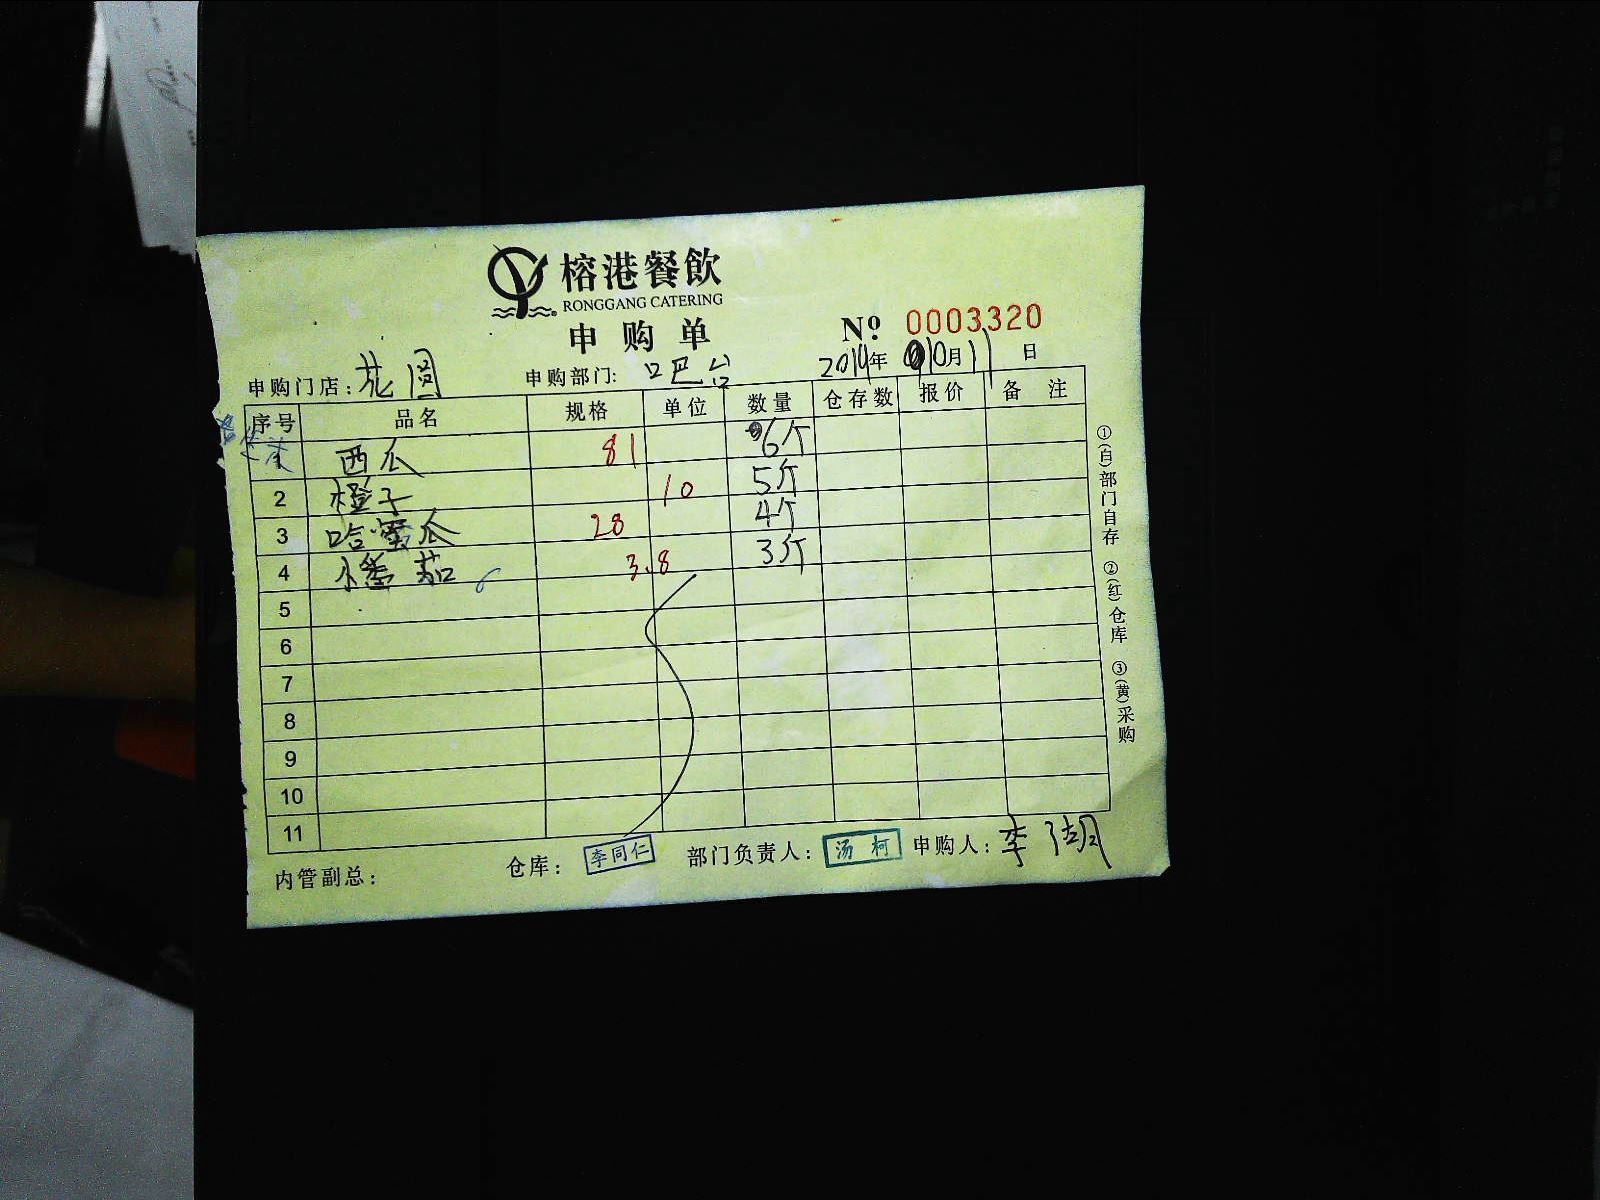 榕港餐飲
RONGGANG CATERING
申购单
№ 0003320
申购门店: 花圆 申购部门: 吧台 2014年10月11日
序号 品名 规格 单位 数量 仓存数 报价 备注
1 西瓜 81 6个
2 橙子 10 5斤
3 哈蜜瓜 28 4个
4 番茄 3.8 3斤
5
6
7
8
9
10
11
内管副总: 仓库: 李同仁 部门负责人: 汤柯 申购人: 李
①(白)部门自存 ②(红)仓库 ③(黄)采购